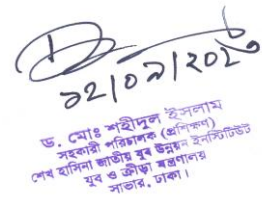 ১২/০৯/২০২
ড. মোঃ শহীদুল ইসলাম
সহকারী পরিচালক (প্রশিক্ষণ)
শেখ হাসিনা জাতীয় যুব উন্নয়ন ইনস্টিটিউট
যুব ও ক্রীড়া মন্ত্রণালয়
সাভার, ঢাকা।